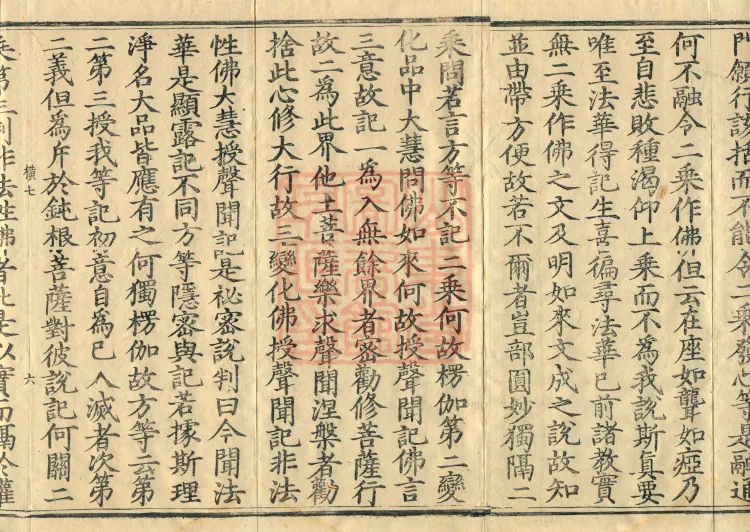 而不能令二乘發心等是融通
何不融令二乘作佛但云在座如聾如瘂乃
至自悲敗種渴仰上乘而不為我說斯真要
唯至法華得記生喜徧尋法華已前諸教實
無二乘作佛之文及明如來文成之說故知
並由帶方便故若不爾者豈部圓妙獨隔二
乘問若言方等不記二乘何故楞伽第二變
化品中大慧問佛如來何故授聲聞記佛言
三意故記一為入無餘界者密勸修菩薩行
故二為此界他土菩薩樂求聲聞涅槃者勸
捨此心修大行故三變化佛授聲聞記非法
性佛大慧授聲聞記是祕密說判曰今聞法
華是顯露記不同方等隱密與記若據斯理
淨名大品皆應有之何獨楞伽故方等云第
二第三授我等記初意自為已入滅者次第
二義但為斥於鈍根菩薩對彼說記何關二
橫七 六
乘第三判非法性佛者此是以實而隔於權